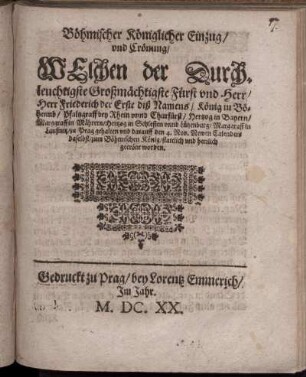 Böhmischer Königlicher Einzug/
vnd Crönung/
WElchen der Durch-
leuchtigste Großmächtigste Fürst vnd Herr/
Herr Friederich der Erste diß Namens/ König in Bö-
heimb/ Pfaltzgraff bey Rhein vnnd Churfürst/ Hertzog in Bayern/
Marggraff in Mährern/ Hertzog in Schlesien vnnd Lützenburg/ Marggraff in
Laußnitz/ zu Prag gehalten vnd darauff den 4. Nov. Newen Calenders
daselbst zum Böhmischen König/ stattlich vnd herrlich
gecrönt worden.
Gedruckt zu Prag/ bey Lorentz Emmerich/
Im Jahr.
M. DC. XX.